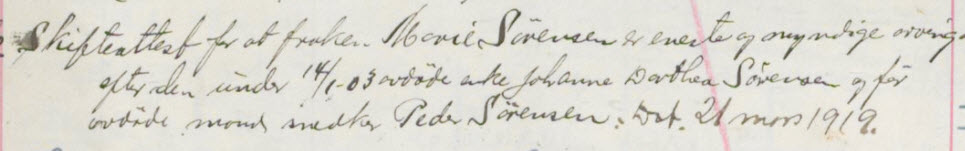 Skifteattest for at frøken Marie Sörensen er eneste og myndige arving
efter den under 14/1-03 avdöde enke Johanne Dorthea Sörensen og för
avdöde mand snedker Peder Sörensen. Dat. 21 mars 1919.